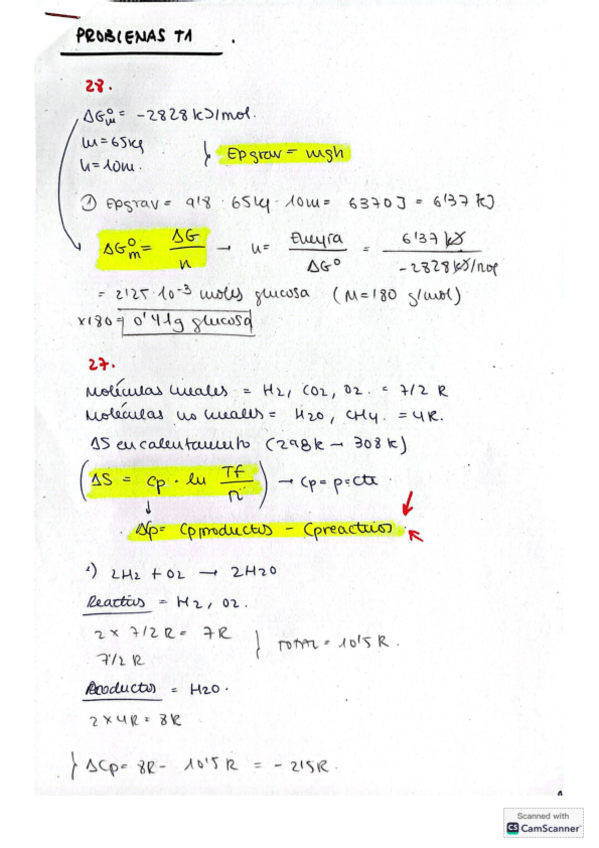 PROBLEMAS T1 .
28.
ΔG°m = -2828 kJ/mol.
m = 65kg
h = 10m.
} Epgrav = mgh
① Epgrav = 9'8 · 65kg · 10m = 6370J = 6'37 kJ
ΔG°m = ΔG / n → n = Energía / ΔG° = 6'37 kJ / -2828 kJ/mol
= 2'25 · 10⁻³ moles glucosa (M=180 g/mol)
x180 = 0'41g glucosa
27.
Moléculas lineales = H2, CO2, O2. = 7/2 R
Moléculas no lineales = H2O, CH4. = 4R.
ΔS en calentamiento (298k → 308k)
(ΔS = Cp · ln Tf / Ti) → Cp = p = cte
↓
ΔCp = Cproductos - Cpreactivos
1) 2H2 + O2 → 2H2O
Reactivos = H2, O2.
2 x 7/2 R = 7R
7/2 R
} TOTAL = 10'5 R.
Productos = H2O.
2 x 4R = 8R
} ΔCp = 8R - 10'5 R = -2'5R.
Scanned with
CS CamScanner